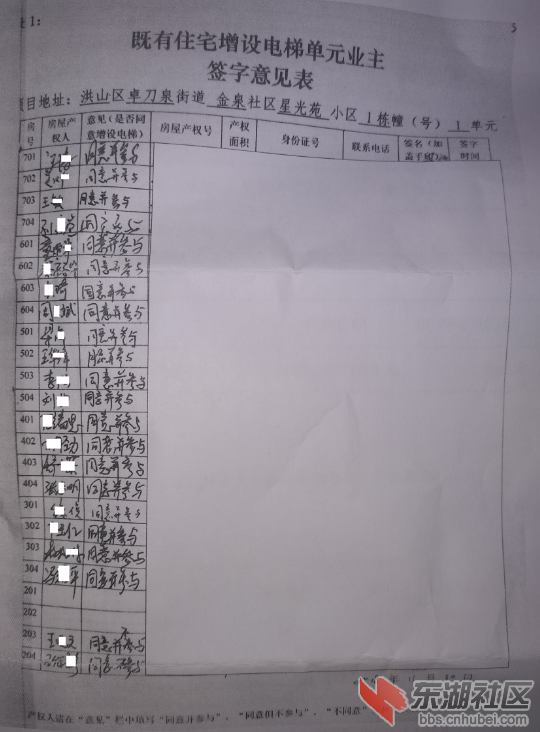 1:
5
既有住宅增设电梯单元业主
签字意见表
项目地址: 洪山区卓刀泉街道 金泉社区星光苑 小区 1栋幢(号) 1 单元
房号 房屋产权人 意见(是否同意增设电梯) 房屋产权号 产权面积 身份证号 联系电话 签名(加盖手印) 签字时间
701 同意并参与
702 同意并参与
703 王 同意并参与
704 同意
601 同意并参与
602 同意不参与
603 同意并参与
604 周 斌 同意并参与
501 同意并参与
502 同意并参与
503 李 同意并参与
504 刘 同意并参与
401 同意并参与
402 同意并参与
403 同意并参与
404 张 明 同意并参与
301 同意并参与
302 仁 同意并参与
303 同意并参与
304 冯 平 同意并参与
201
202
203 王 同意并不参与
204 同意不参与
年 11 月 日
产权人请在“意见”栏中填写“同意并参与”,“同意但不参与”,“不同意”
东湖社区
bbs.cnhubei.com